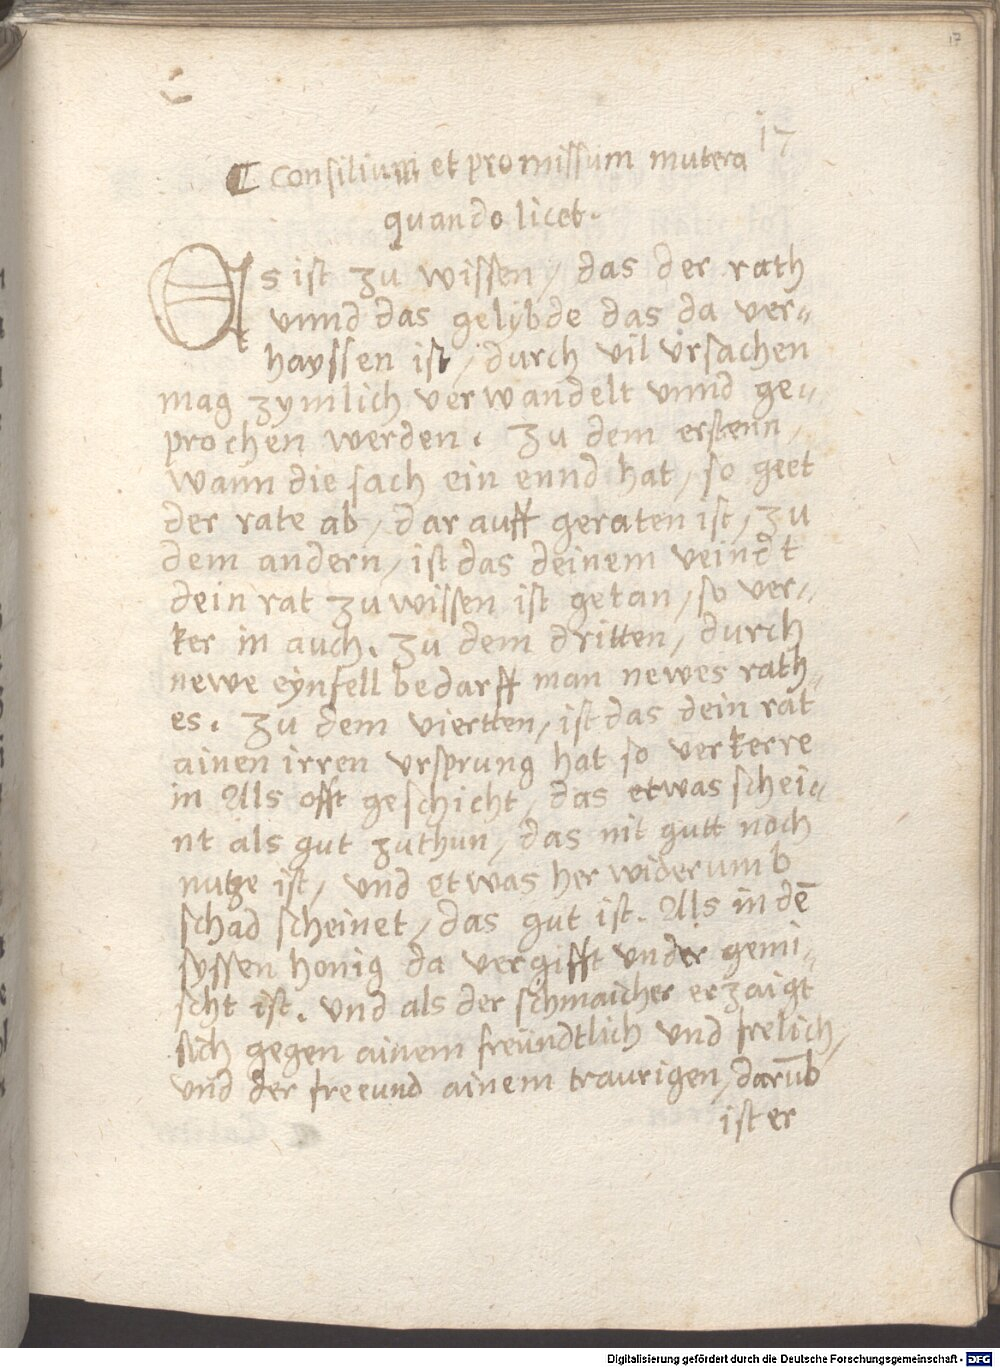 17
17
¶ Consilium et promissum mutera
quando licet.
Es ist zu wissen / das der rath
vnnd das gelybde das da ver=
hayssen ist / durch vil vrsachen
mag zymlich verwandelt vnnd ge=
prochen werden. Zu dem erstenn /
wann die sach ein ennd hat / so geet
der rate ab / dar auff geraten ist / zu
dem andern / ist das deinem veindt
dein rat zu wissen ist getan / so ver=
ker in auch. Zu dem dritten / durch
newe eynfell bedarff man newes rath=
es. Zu dem viertten / ist das dein rat
ainen irren vrsprung hat so verkerre
in Als offt geschicht / das etwas schei=
nt als gut zuthun / das nit gutt noch
nutze ist / vnd etwas her widerumb
schad scheinet / das gut ist. Als in dē
syssen honig da vergifft vnder gemi=
scht ist. vnd als der schmaicher erzaigt
sich gegen ainem freündtlich vnd frelich /
vnd der freeund ainem traurigen / darūb
ist er
Digitalisierung gefördert durch die Deutsche Forschungsgemeinschaft - DFG